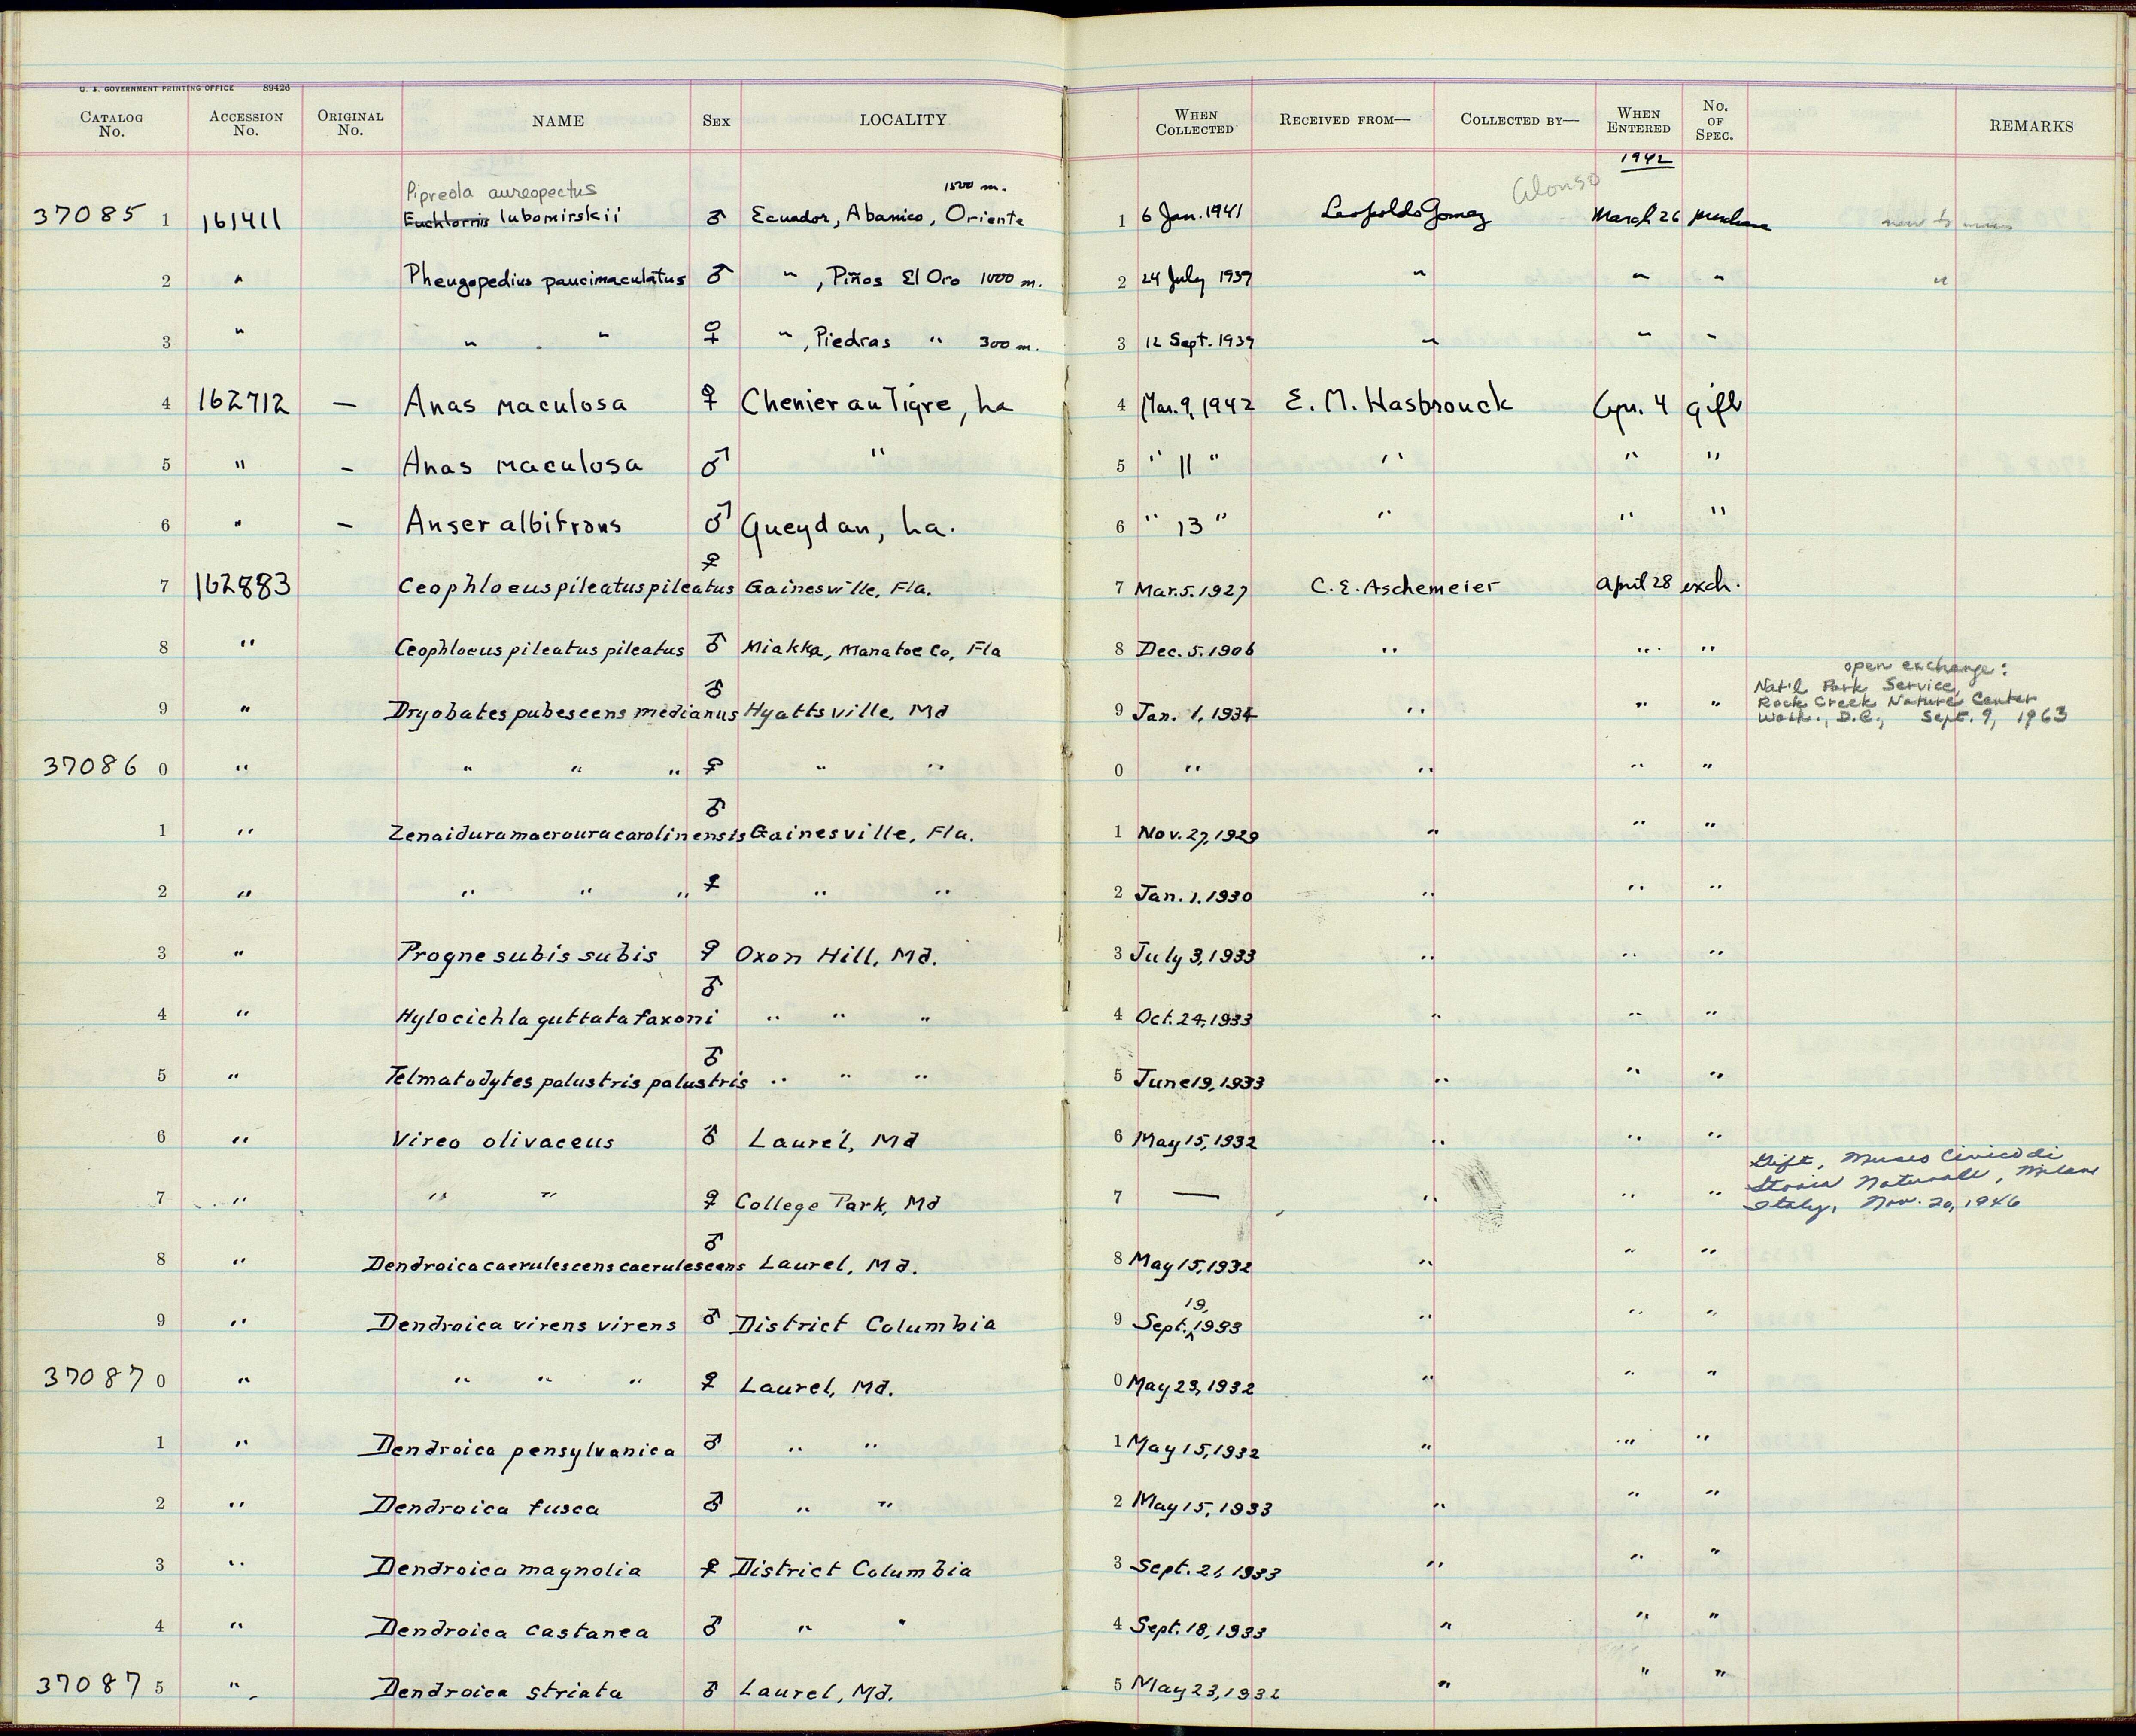 U. S. GOVERNMENT PRINTING OFFICE 89426
CATALOG No. ACCESSION No. ORIGINAL No. NAME SEX LOCALITY WHEN COLLECTED RECEIVED FROM— COLLECTED BY— WHEN ENTERED No. OF SPEC. REMARKS
1942
Pipreola aureopectus 1500 m. Alonso
37085 1 161411 Euchlornis lubomirskii ♂ Ecuador, Abanico, Oriente 1 6 Jan. 1941 Leopoldo Gomez March 26 purchase new to mus
2 " Pheugopedius paucimaculatus ♂ " , Piños El Oro 1000 m. 2 24 July 1939 " " " "
3 " " " ♀ " , Piedras " 300 m. 3 12 Sept. 1939 " " "
4 162712 — Anas maculosa ♀ Chenier au Tigre, La 4 Mar. 9, 1942 E. M. Hasbrouck Apr. 4 gift
5 " — Anas maculosa ♂ " 5 " 11 " " " "
6 " — Anser albifrons ♂ Gueydan, La. 6 " 13 " " " "
7 162883 Ceophloeus pileatus pileatus ♀ Gainesville, Fla. 7 Mar. 5. 1927 C. E. Aschemeier April 28 exch.
8 " Ceophloeus pileatus pileatus ♂ Miakka, Manatee Co, Fla 8 Dec. 5. 1906 " " "
open exchange:
Nat'l Park Service,
Rock Creek Nature Center
Wash., D.C., Sept. 9, 1963
9 " Dryobates pubescens medianus ♂ Hyattsville, Md 9 Jan. 1, 1934 " " "
37086 0 " " " " ♀ " " 0 " " " "
1 " Zenaidura macroura carolinensis ♂ Gainesville, Fla. 1 Nov. 27, 1929 " " "
2 " " " " ♀ " " 2 Jan. 1. 1930 " " "
3 " Progne subis subis ♀ Oxon Hill, Md. 3 July 3, 1933 " " "
4 " Hylocichla guttata faxoni ♂ " " " 4 Oct. 24, 1933 " " "
5 " Telmatodytes palustris palustris ♂ " " " 5 June 19, 1933 " " "
6 " Vireo olivaceus ♂ Laurel, Md 6 May 15, 1932 " " "
Gift, Museo Civico di
Storia Naturale, Milano
Italy, Nov. 20, 1946
7 " " " ♀ College Park, Md 7 — " " "
8 " Dendroica caerulescens caerulescens ♂ Laurel, Md. 8 May 15, 1932 " " "
9 " Dendroica virens virens ♂ District Columbia 9 Sept. 19, 1933 " " "
37087 0 " " " " ♀ Laurel, Md. 0 May 23, 1932 " " "
1 " Dendroica pensylvanica ♂ " " 1 May 15, 1932 " " "
2 " Dendroica fusca ♂ " " 2 May 15, 1933 " " "
3 " Dendroica magnolia ♀ District Columbia 3 Sept. 21, 1933 " " "
4 " Dendroica castanea ♂ " " 4 Sept. 18, 1933 " " "
37087 5 " Dendroica striata ♂ Laurel, Md. 5 May 23, 1932 " " "